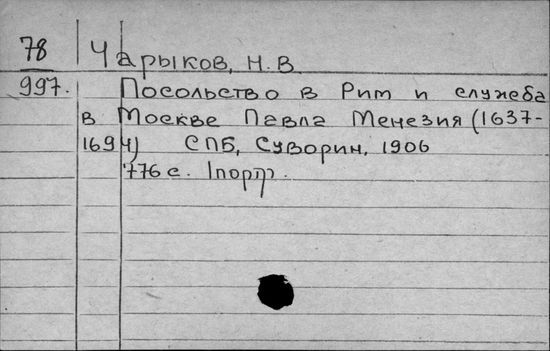 78 Чарыков, Н. В
997. Посольство в Рим и служба
в Москве Павла Менезия (1637-
1694) СПБ, Суворин, 1906
776 с. 1портр.